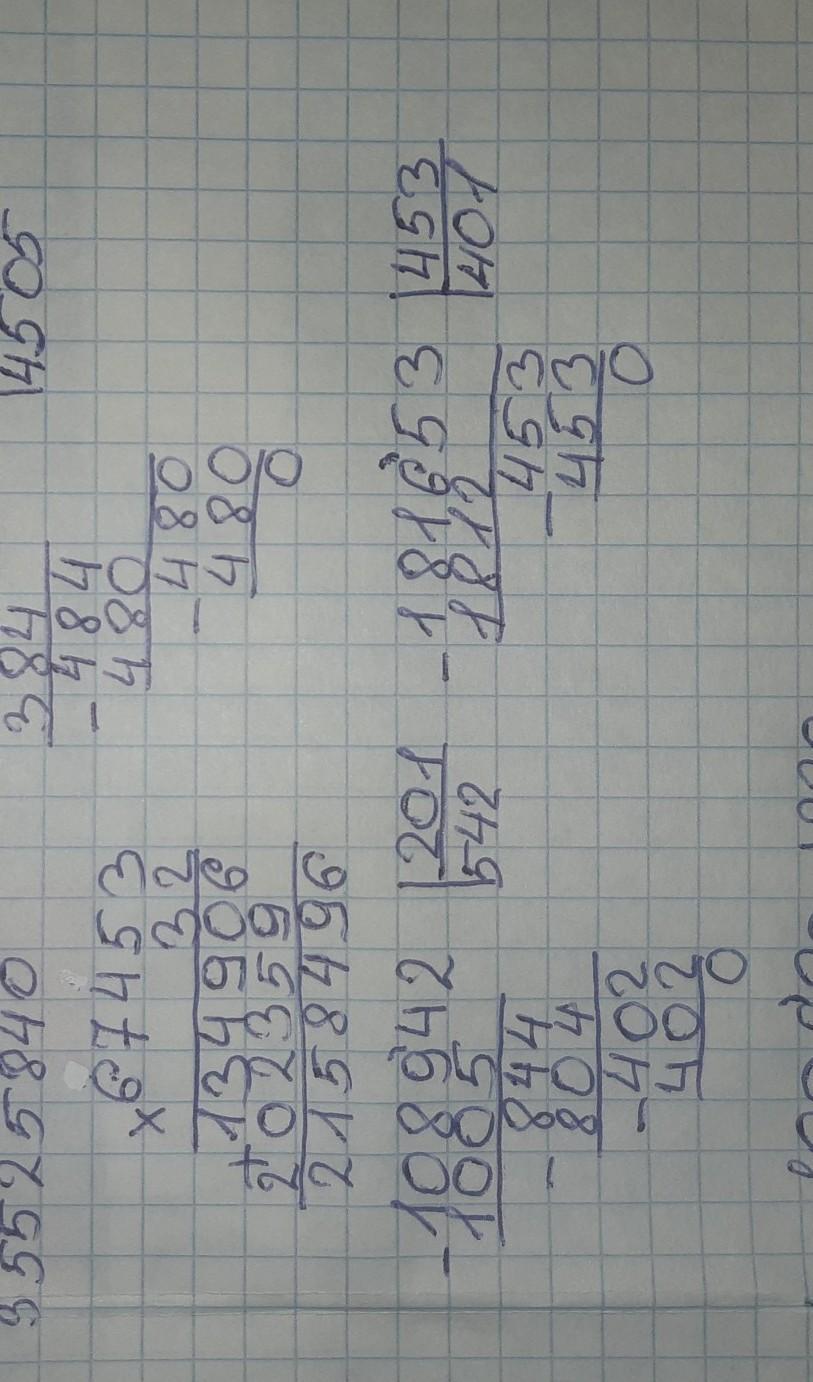 35525840 384 |4505
- 484
× 67453 480
32 - 480
134906 480
+ 202359 0
2158496
- 108942 |201 - 181653 |453
1005 |542 1812 |401
- 844 - 453
804 453
- 402 0
402
0